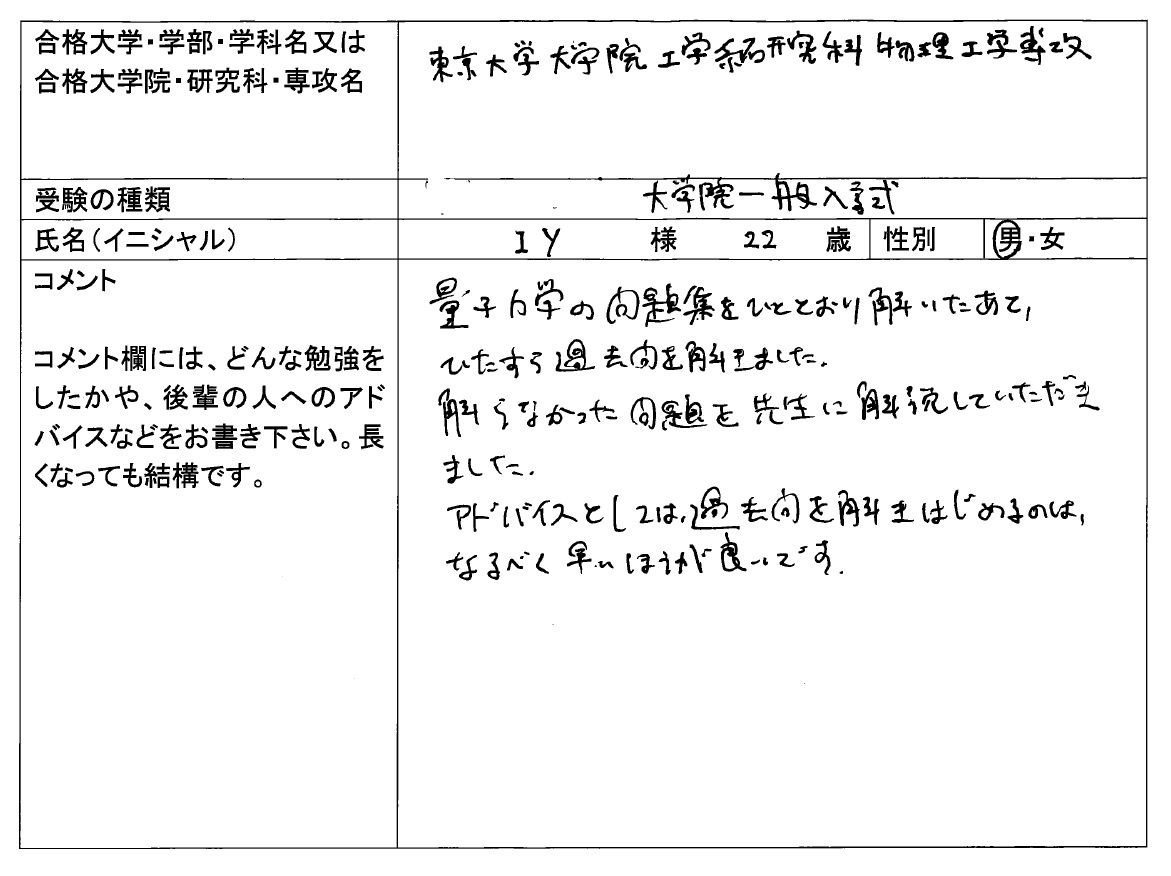 合格大学・学部・学科名又は
合格大学院・研究科・専攻名
東京大学大学院工学系研究科物理工学専攻
受験の種類
大学院一般入試
氏名(イニシャル)
IY 様 22 歳 性別 男・女
コメント
コメント欄には、どんな勉強を
したかや、後輩の人へのアド
バイスなどをお書き下さい。長
くなっても結構です。
量子力学の問題集をひととおり解いたあと,
ひたすら過去問を解きました.
解らなかった問題を先生に解説していただき
ました.
アドバイスとしては,過去問を解きはじめるのは,
なるべく早いほうが良いです.